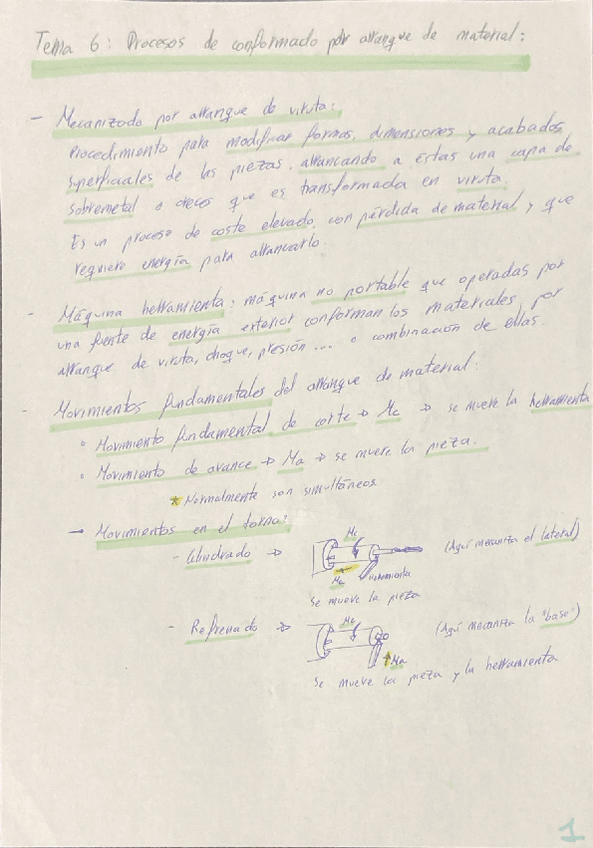 Tema 6: Procesos de conformado por arranque de material:
- Mecanizado por arranque de viruta:
Procedimiento para modificar formas, dimensiones y acabados
superficiales de las piezas, arrancando a éstas una capa de
sobremetal o creces que es transformada en viruta.
Es un proceso de coste elevado, con pérdida de material y que
requiere energía para arrancarlo.
- Máquina herramienta: máquina no portable que operadas por
una fuente de energía exterior conforman los materiales, por
arranque de viruta, choque, presión... o combinación de ellas.
- Movimientos fundamentales del arranque de material:
◦ Movimiento fundamental de corte → Mc → se mueve la herramienta
◦ Movimiento de avance → Ma → se mueve la pieza.
* Normalmente son simultáneos
→ Movimientos en el torno:
- Cilindrado →
Mc
(Aquí mecaniza el lateral)
Ma
Herramienta
Se mueve la pieza
- Refrenado →
Mc
(Aquí mecaniza la "base")
Ma
Se mueve la pieza y la herramienta
1